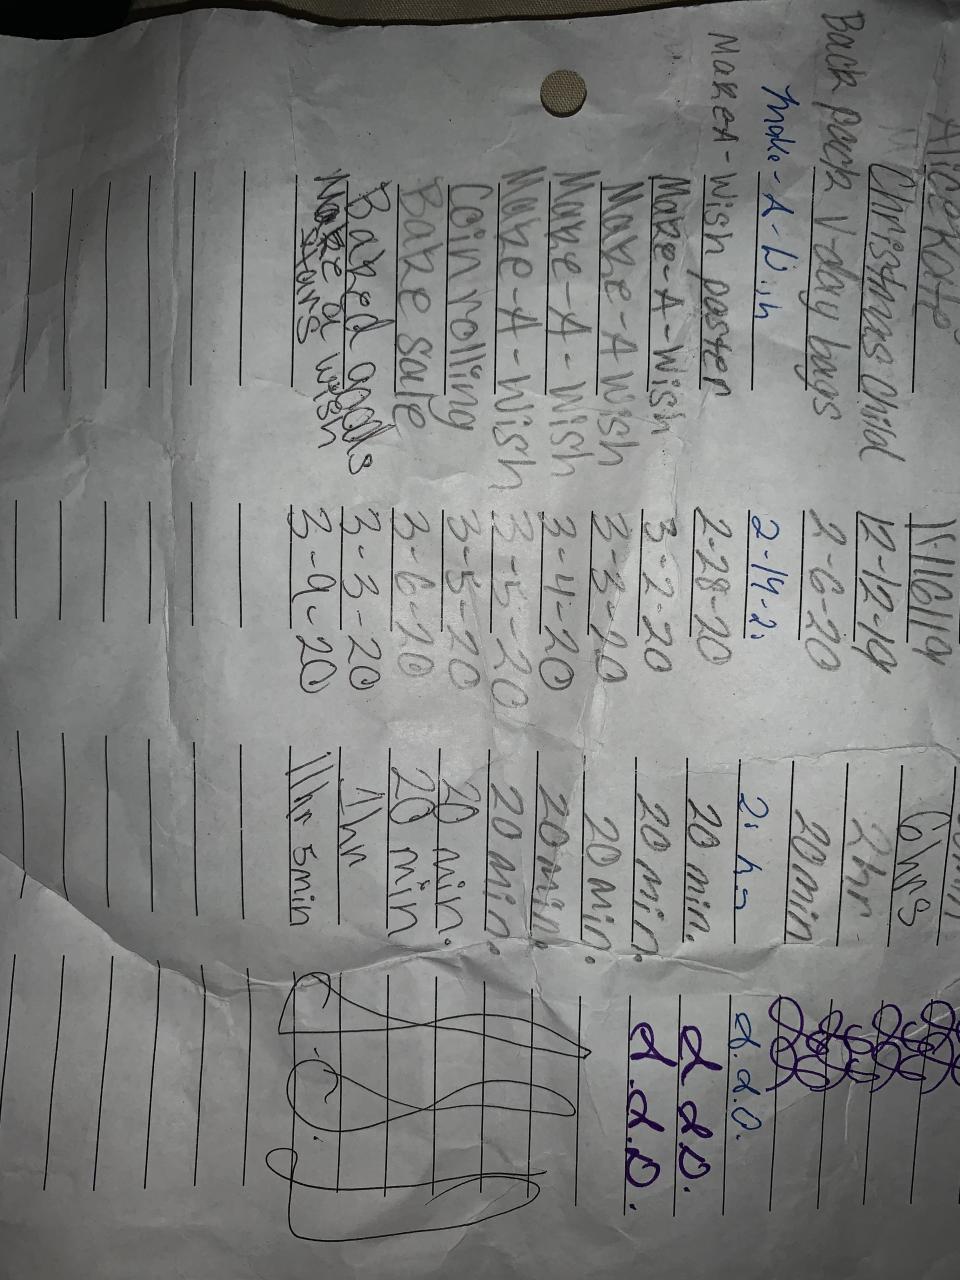 11/16/19 6hrs
Christmas Child 12-12-19 2hr
Back pack V-day bags 2-6-20 20min
Make-A-Wish 2-14-2 hr d.d.D.
Make-A-Wish poster 2-28-20 20 min. d d.D.
Make-A-Wish 3-2-20 20 min. d.d.D.
Make-A Wish 3-3-20 20 min.
Make-A-Wish 3-4-20 20 min.
Make-A-Wish 3-5-20 20 min.
Coin rolling 3-5-20 20 min.
Bake sale 3-6-20 20 min
Baked goods 3-3-20 1hr
Make a wish stars 3-9-20 1hr 5min